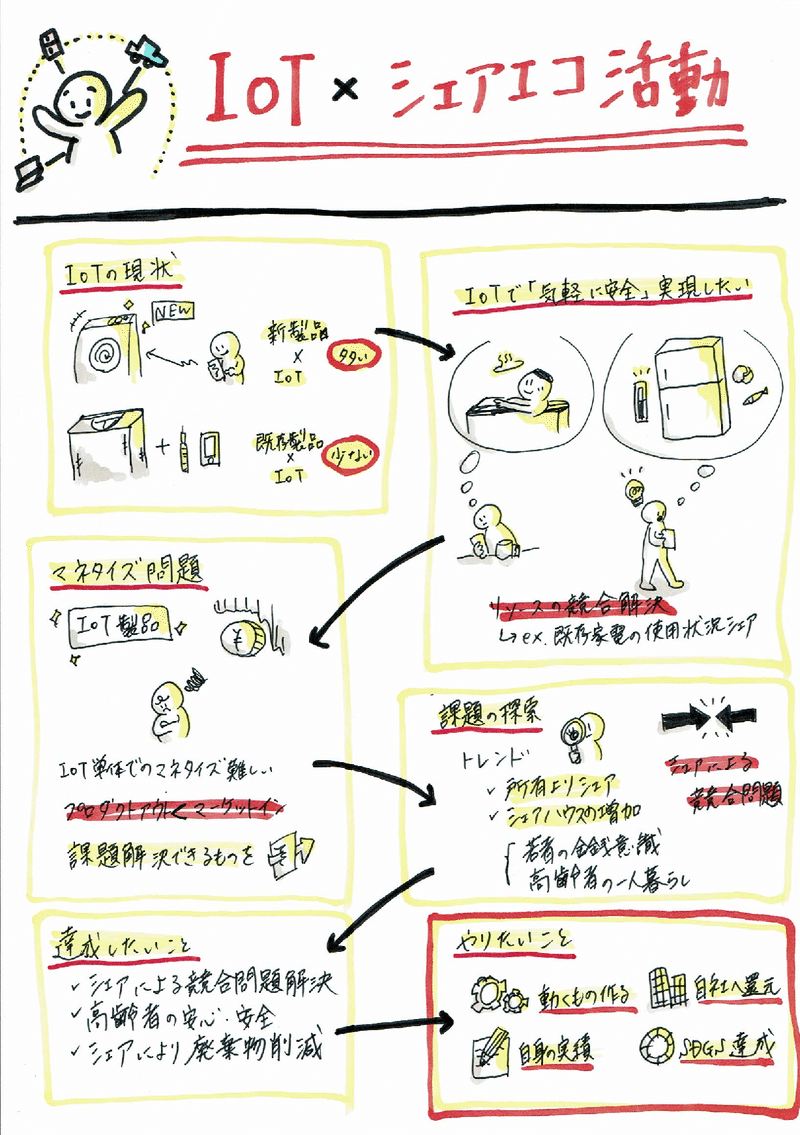 IoT × シェアエコ活動
IoTの現状
NEW
新製品
×
IoT
多い
+
既存製品
×
IoT
少ない
IoTで「気軽に安全」実現したい
リソースの競合解決
↳ex.既存家電の使用状況シェア
マネタイズ問題
IoT製品
¥
IoT単体でのマネタイズ難しい
プロダクトアウト<マーケットイン
課題解決できるものを
課題の探索
トレンド
✓所有よりシェア
✓シェアハウスの増加
若者の金銭意識
高齢者の一人暮らし
シェアによる
競合問題
達成したいこと
✓シェアによる競合問題解決
✓高齢者の安心・安全
✓シェアにより廃棄物削減
やりたいこと
動くもの作る
自社へ還元
自身の実積
SDGs達成